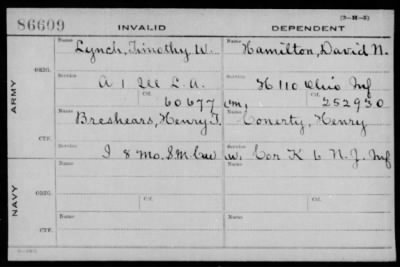 86609
INVALID
DEPENDENT
(3-H-5)
ARMY
NAVY
ORIG.
Name
Lynch, Timothy W.
Name
Hamilton, David N.
Service
A 1 Ill L.A.
Service
H 110 Ohio Inf
Ctf.
60677
Ctf.
m, 252930
CTF.
Name
Breshears, Henry T.
Name
Conerty, Henry
Service
I 8 Mo. S.M. Cav
Service
w, Cor K 6 N.J. Inf
ORIG.
Name
Name
Service
Ctf.
Service
Ctf.
CTF.
Name
Name
Service
Service